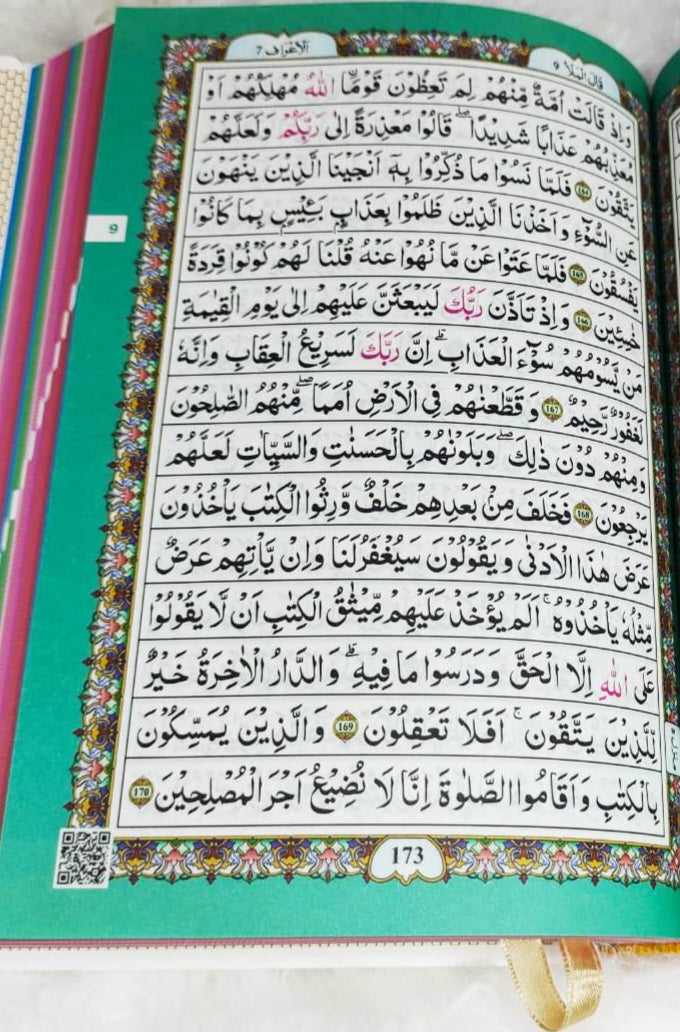 اَلْاَعْرَاف ٧
قَالَ الْمَلَاُ ٩
وَاِذْ قَالَتْ اُمَّةٌ مِّنْهُمْ لِمَ تَعِظُوْنَ قَوْمًا ۨاللّٰهُ مُهْلِكُهُمْ اَوْ
مُعَذِّبُهُمْ عَذَابًا شَدِيْدًا ۖ قَالُوْا مَعْذِرَةً اِلٰى رَبِّكُمْ وَلَعَلَّهُمْ
يَتَّقُوْنَ 164 فَلَمَّا نَسُوْا مَا ذُكِّرُوْا بِهٖٓ اَنْجَيْنَا الَّذِيْنَ يَنْهَوْنَ
عَنِ السُّوْۤءِ وَاَخَذْنَا الَّذِيْنَ ظَلَمُوْا بِعَذَابٍۭ بَـِٔيْسٍۢ بِمَا كَانُوْا
يَفْسُقُوْنَ 165 فَلَمَّا عَتَوْا عَنْ مَّا نُهُوْا عَنْهُ قُلْنَا لَهُمْ كُوْنُوْا قِرَدَةً
خٰسِـِٕيْنَ 166 وَاِذْ تَاَذَّنَ رَبُّكَ لَيَبْعَثَنَّ عَلَيْهِمْ اِلٰى يَوْمِ الْقِيٰمَةِ
مَنْ يَّسُوْمُهُمْ سُوْۤءَ الْعَذَابِ ۗ اِنَّ رَبَّكَ لَسَرِيْعُ الْعِقَابِ وَاِنَّهٗ
لَغَفُوْرٌ رَّحِيْمٌ 167 وَقَطَّعْنٰهُمْ فِى الْاَرْضِ اُمَمًا ۖ مِّنْهُمُ الصّٰلِحُوْنَ
وَمِنْهُمْ دُوْنَ ذٰلِكَ ۖ وَبَلَوْنٰهُمْ بِالْحَسَنٰتِ وَالسَّيِّاٰتِ لَعَلَّهُمْ
يَرْجِعُوْنَ 168 فَخَلَفَ مِنْۢ بَعْدِهِمْ خَلْفٌ وَّرِثُوا الْكِتٰبَ يَاْخُذُوْنَ
عَرَضَ هٰذَا الْاَدْنٰى وَيَقُوْلُوْنَ سَيُغْفَرُ لَنَا وَاِنْ يَّاْتِهِمْ عَرَضٌ
مِّثْلُهٗ يَاْخُذُوْهُ ۚ اَلَمْ يُؤْخَذْ عَلَيْهِمْ مِّيْثَاقُ الْكِتٰبِ اَنْ لَّا يَقُوْلُوْا
عَلَى اللّٰهِ اِلَّا الْحَقَّ وَدَرَسُوْا مَا فِيْهِ ۗ وَالدَّارُ الْاٰخِرَةُ خَيْرٌ
لِّلَّذِيْنَ يَتَّقُوْنَ ۚ اَفَلَا تَعْقِلُوْنَ 169 وَالَّذِيْنَ يُمَسِّكُوْنَ
بِالْكِتٰبِ وَاَقَامُوا الصَّلٰوةَ اِنَّا لَا نُضِيْعُ اَجْرَ الْمُصْلِحِيْنَ 170
173
9